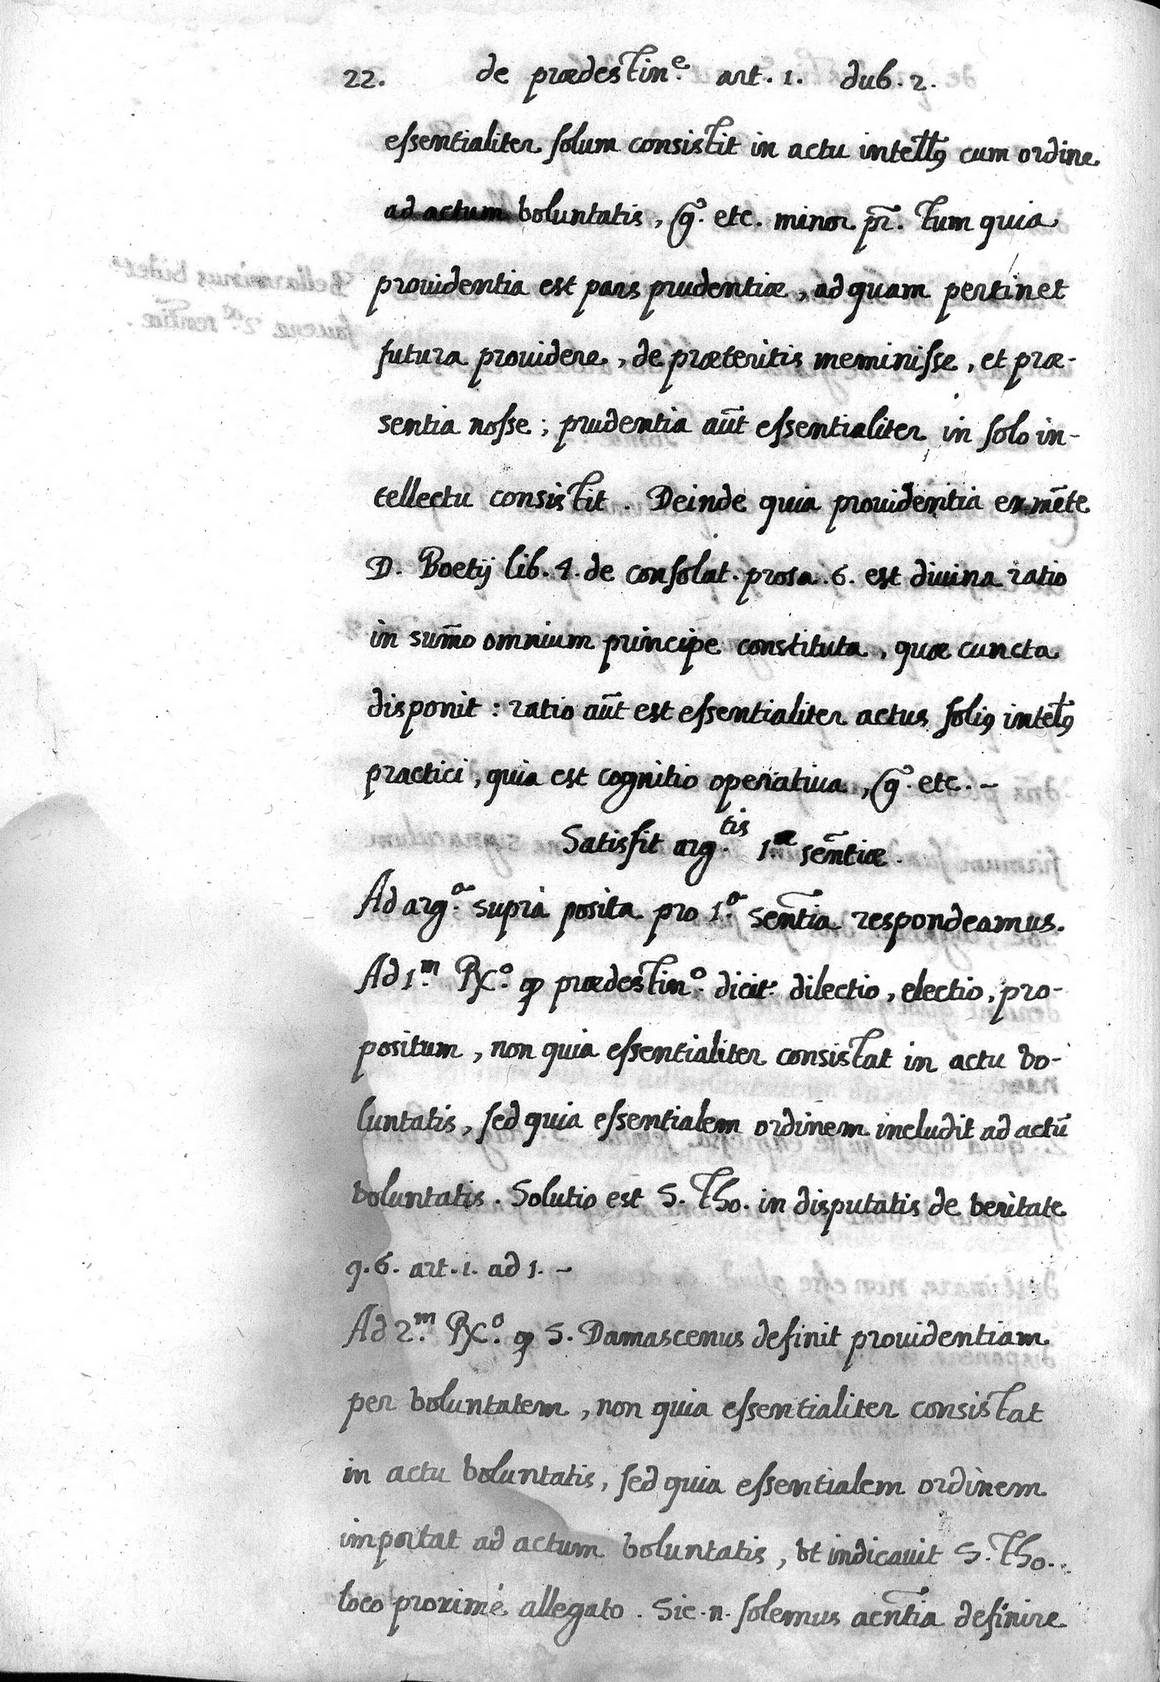 22. de prædestin.e art. 1. dub. 2.
essentialiter solum consistit in actu intellꝰ cum ordine
ad actum voluntatis, g.º etc. minor pr̃. tum quia
prouidentia est pars prudentiæ, ad quam pertinet
futura prouidere, de præteritis meminisse, et præ-
sentia nosse; prudentia aũt essentialiter in solo in-
tellectu consistit. Deinde quia prouidentia ex mẽte
D. Boetij lib. 4. de consolat. prosa. 6. est diuina ratio
in sum̃o omnium principe constituta, quæ cuncta
disponit: ratio aũt est essentialiter actus soliꝰ intelꝰ
practici, quia est cognitio operatiua, g.º etc. –
Satisfit arg.tis 1.æ sẽntiæ.
Ad arg.a suprà posita pro 1.a sẽntia respondeamus.
Ad 1.m Rx.o qp prædestin.o dicit.r dilectio, electio, pro-
positum, non quia essentialiter consistat in actu vo-
luntatis, sed quia essentialem ordinem includit ad actũ
voluntatis. Solutio est S. Tho. in disputatis de veritate
q. 6. art. 1. ad 1. –
Ad 2.m Rx.o qp S. Damascenus definit prouidentiam
per voluntatem, non quia essentialiter consistat
in actu voluntatis, sed quia essentialem ordinem
importat ad actum voluntatis, vt indicauit S. Tho.
loco proximè allegato. Sic .n. solemus acñtia definire